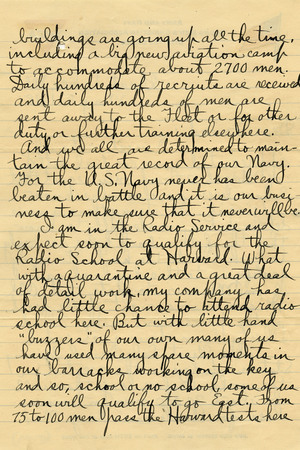 buildings are going up all the time,
including a big new aviation camp
to accommodate about 2700 men.
Daily hundreds of recruits are received
and daily hundreds of men are
sent away to the Fleet or for other
duty or further training elsewhere.
And we all are determined to main-
tain the great record of our Navy.
For the U.S. Navy never has been
beaten in battle and it is our busi-
ness to make sure that it never will be.
I am in the Radio Service and
expect soon to qualify for the
Radio School at Harvard. What
with quarantine and a great deal
of detail work, my company has
had little chance to attend radio
school here. But with little hand
"buzzers" of our own many of us
have used many spare moments in
our barracks working on the key
and so, school or no school, some of us
soon will qualify to go East. From
75 to 100 men pass the Harvard tests here